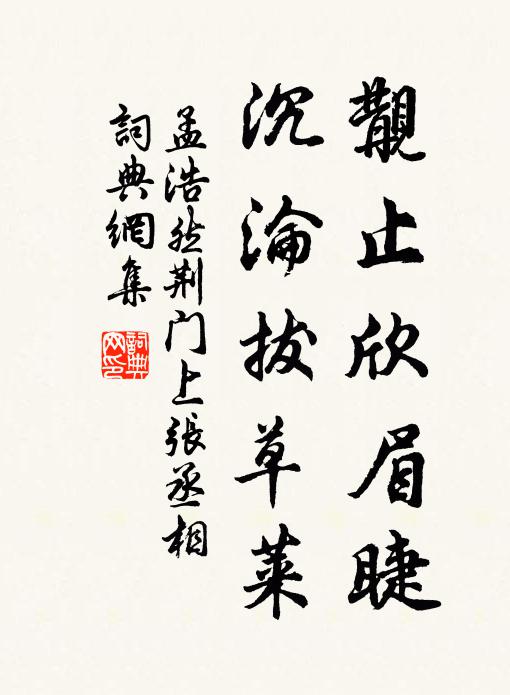 觀止欣眉睫
沉淪拔草萊
孟浩然荆门上張丞相
詞典網集
詞典網印